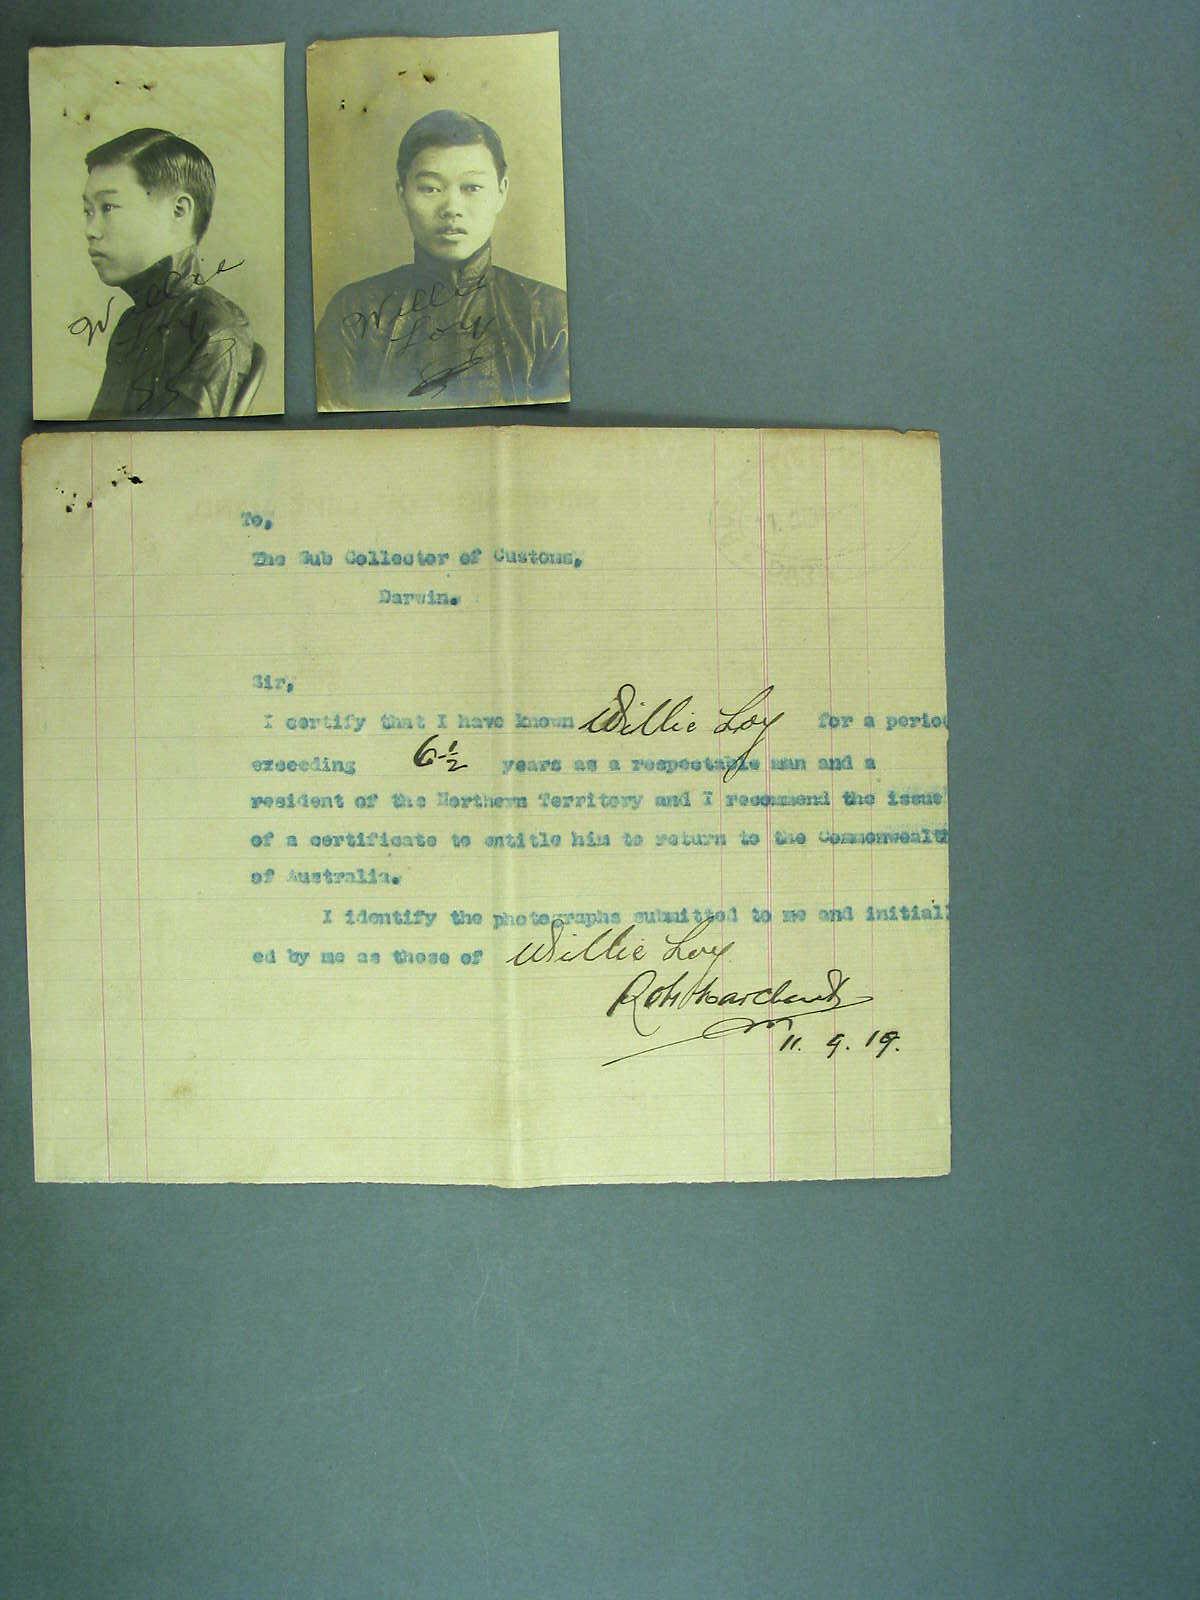 Willie
Loy
Willie
Loy
To,
The Sub Collector of Customs,
Darwin.
Sir,
I certify that I have known Willie Loy for a period
exceeding 6½ years as a respectable man and a
resident of the Northern Territory and I recommend the issue
of a certificate to entitle him to return to the Commonwealth
of Australia.
I identify the photographs submitted to me and initial
ed by me as those of Willie Loy
11. 9. 19.